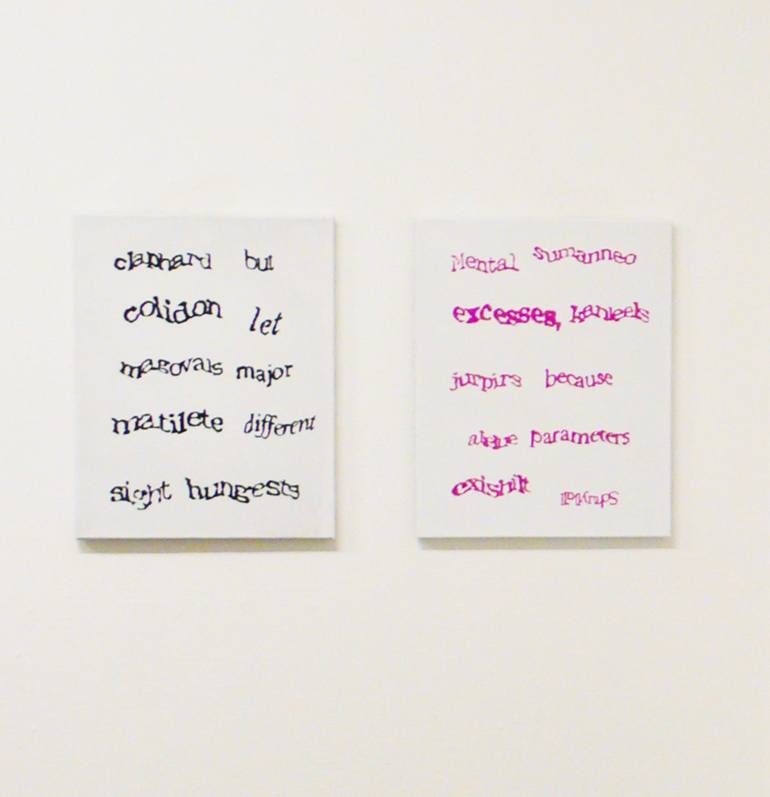 claphard but
colidon let
magovals major
matilete different
sight hungests
Mental sumanneo
excesses, kanleels
jurpirs because
parameters
exishilt